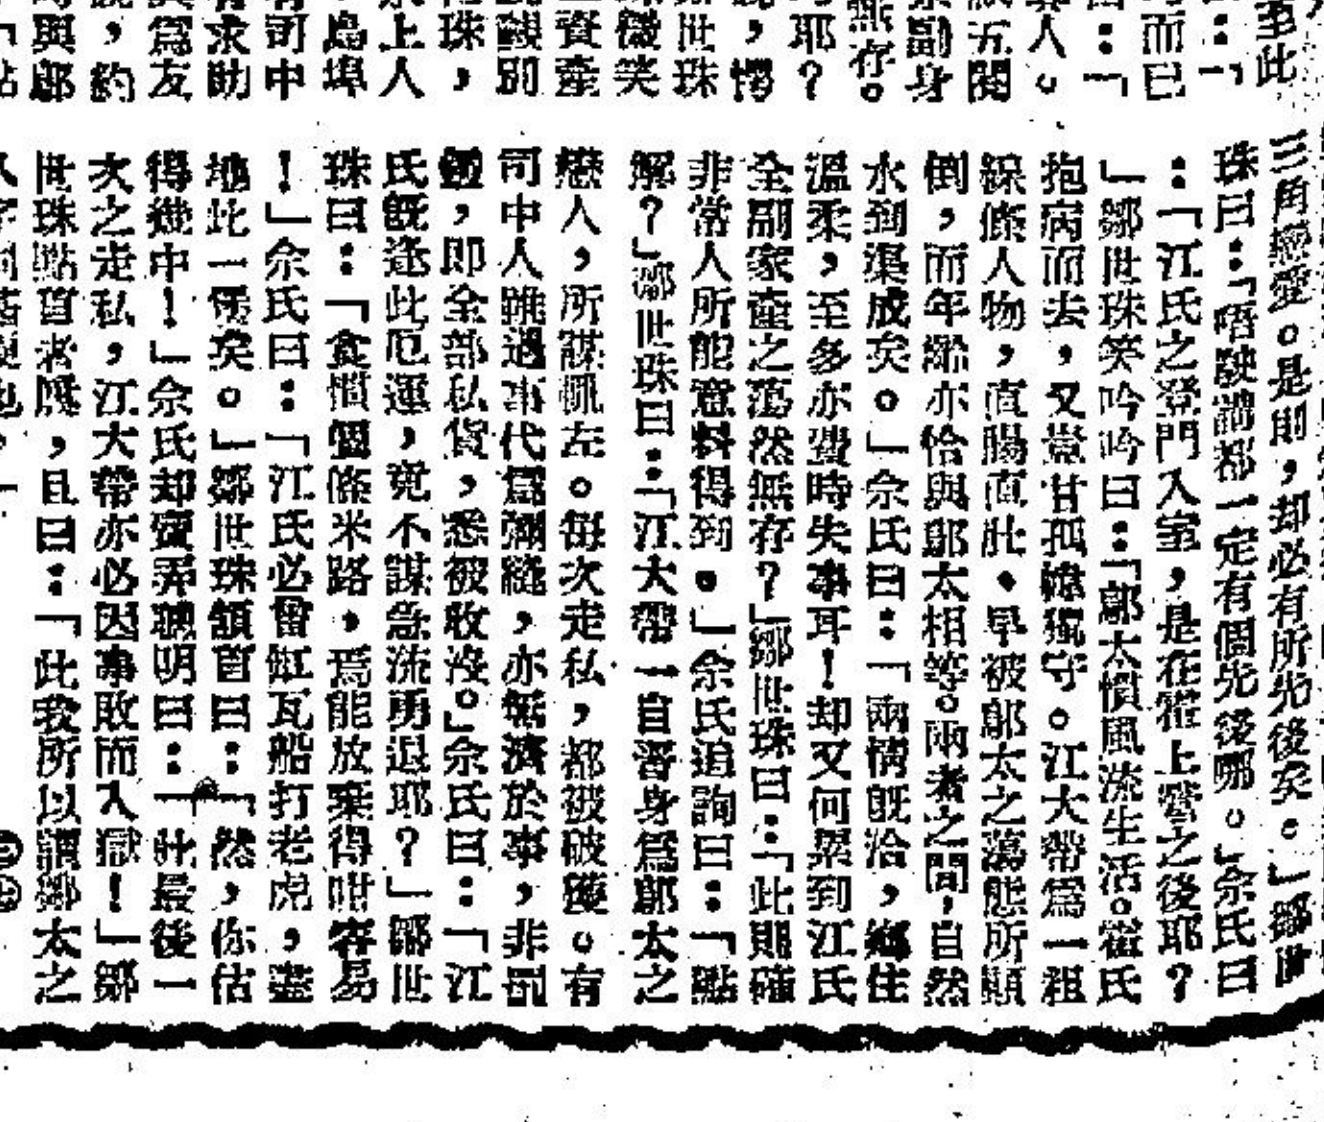 至此
：「
而已
：「
人。
五閱
副身
無存。
耶？
，愕
世珠
微笑
資產
餞別
珠，
上人
島埠
司中
求助
為友
，約
與鄔
三角戀愛。是則，却必有所先後矣。」鄒世
珠曰：「唔駛講都一定有個先後嘅。」佘氏曰
：「江氏之登門入室，是在霍上鶯之後耶？
」鄒世珠笑吟吟曰：「鄔太慣風流生活。霍氏
抱病而去，又豈甘孤幃獨守。江大帶為一粗
線條人物，直腸直肚，早被鄔太之蕩態所顛
倒，而年齡亦恰與鄔太相等。兩者之間，自然
水到渠成矣。」佘氏曰：「兩情既洽，鄉住
溫柔，至多亦費時失事耳！却又何累到江氏
全副家產之蕩然無存？」鄒世珠曰：「此則確
非常人所能意料得到。」佘氏追詢曰：「點
解？」鄒世珠曰：「江大帶一自晋身為鄔太之
戀人，所謀輒左。每次走私，都被破獲。有
司中人雖遇事代為彌縫，亦無濟於事，非罰
鍰，即全部私貨，悉被收沒。」佘氏曰：「江
氏既逢此厄運，竟不謀急流勇退耶？」鄒世
珠曰：「食慣個條米路，焉能放棄得咁容易
！」佘氏曰：「江氏必曾缸瓦船打老虎，盡
地此一煲矣。」鄒世珠頷首曰：「然，你估
得幾中！」佘氏却賣弄聰明曰：「此最後一
次之走私，江大帶亦必因事敗而入獄！」鄒
世珠點首者屢，且曰：「此我所以謂鄔太之